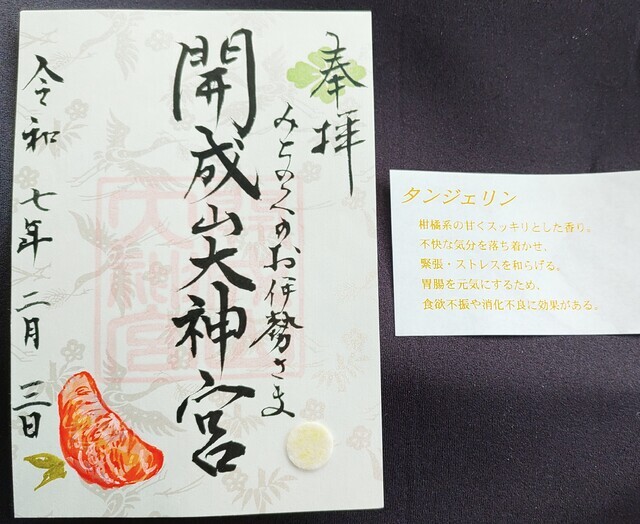 奉拝
みちのくのお伊勢さま
開成山大神宮
令和 七年 二月 三日
タンジェリン
柑橘系の甘くスッキリとした香り。
不快な気分を落ち着かせ、
緊張・ストレスを和らげる。
胃腸を元気にするため、
食欲不振や消化不良に効果がある。